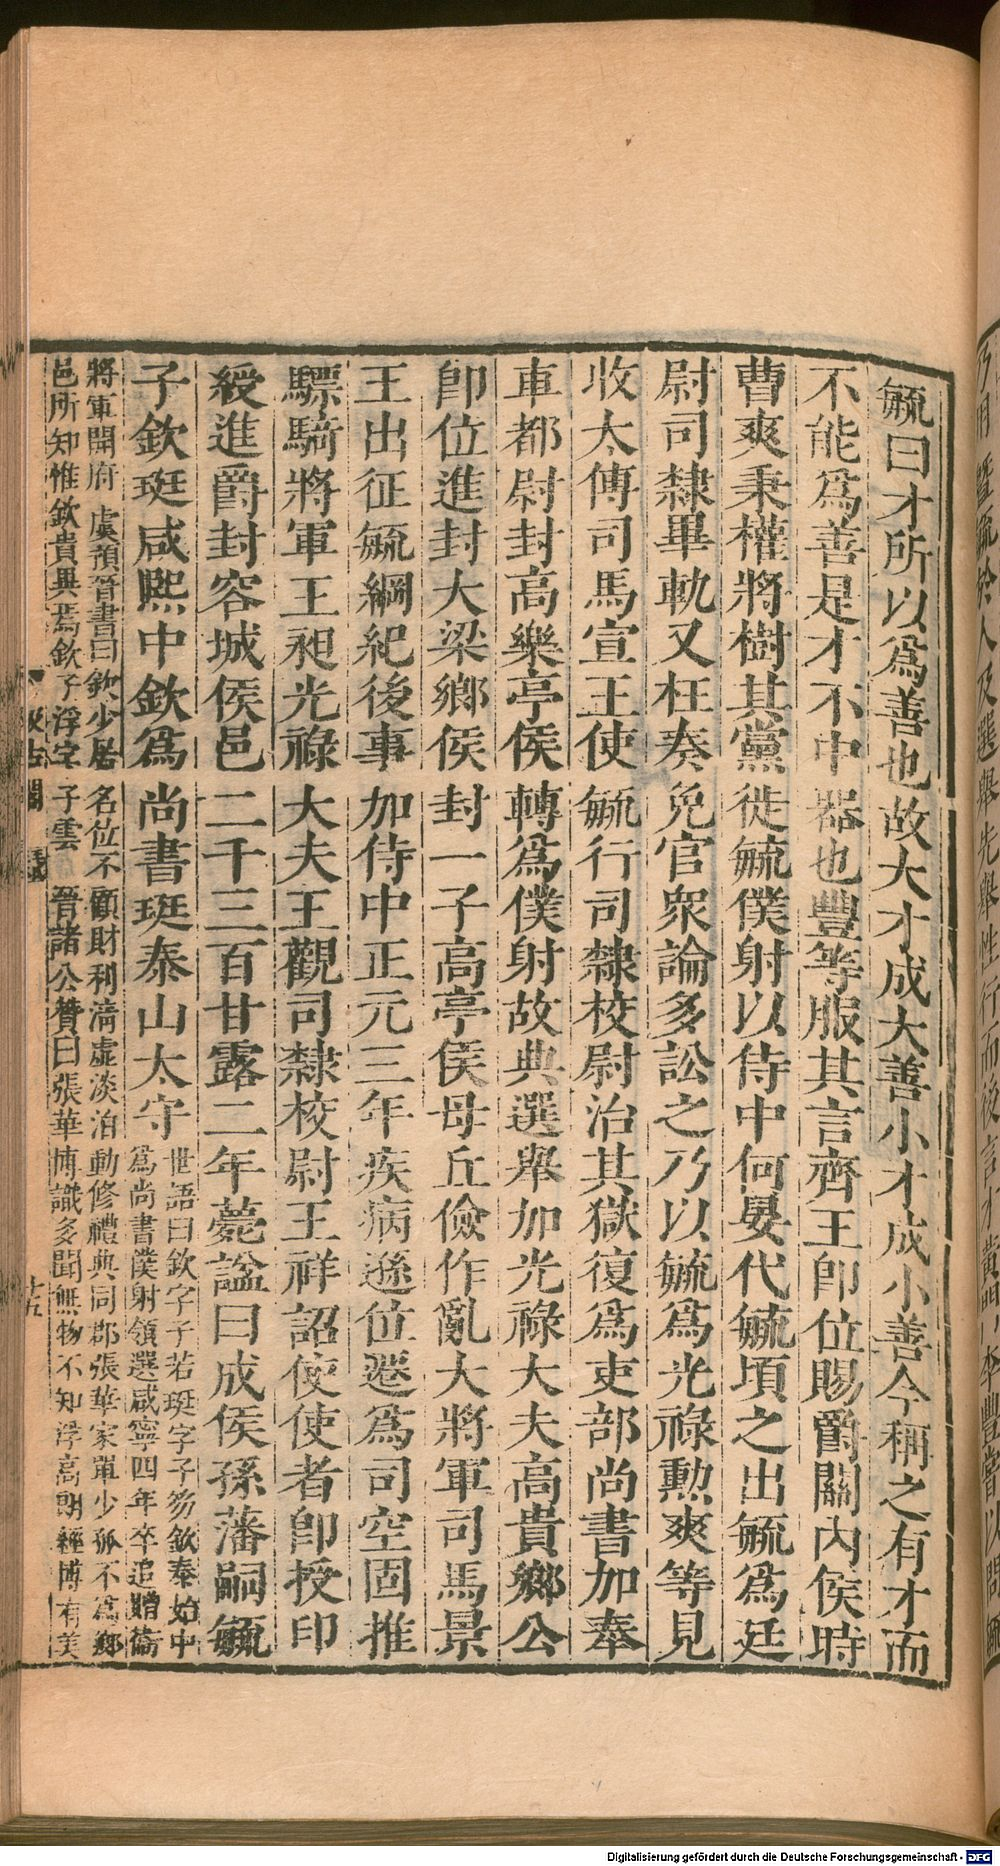 毓曰才所以爲善也故大才成大善小才成小善今稱之有才而
不能爲善是才不中器也豐等服其言齊王卽位賜爵關內侯時
曹爽秉權將樹其黨徙毓僕射以侍中何晏代毓頃之出毓爲廷
尉司隸畢軌又枉奏免官衆論多訟之乃以毓爲光祿勳爽等見
收太傅司馬宣王使毓行司隸校尉治其獄復爲吏部尚書加奉
車都尉封高樂亭侯轉爲僕射故典選舉加光祿大夫高貴鄉公
卽位進封大梁鄉侯封一子高亭侯母丘儉作亂大將軍司馬景
王出征毓綱紀後事加侍中正元三年疾病遜位遷爲司空固推
驃騎將軍王昶光祿大夫王觀司隸校尉王祥詔使使者卽授印
綬進爵封容城侯邑二千三百甘露二年薨諡曰成侯孫藩嗣毓
子欽珽咸熙中欽爲尚書珽泰山太守
世語曰欽字子若珽字子笏欽泰始中
爲尚書僕射領選咸寧四年卒追贈衞
將軍開府 虞預晉書曰欽少居名位不顧財利淸虛淡泊動修禮典同郡張華家單少孤不爲鄉
邑所知惟欽貴異焉欽子浮字子雲 晉諸公贊曰張華博識多聞無物不知浮高朗經博有美
汲古閣
十五
Digitalisierung gefördert durch die Deutsche Forschungsgemeinschaft - DFG